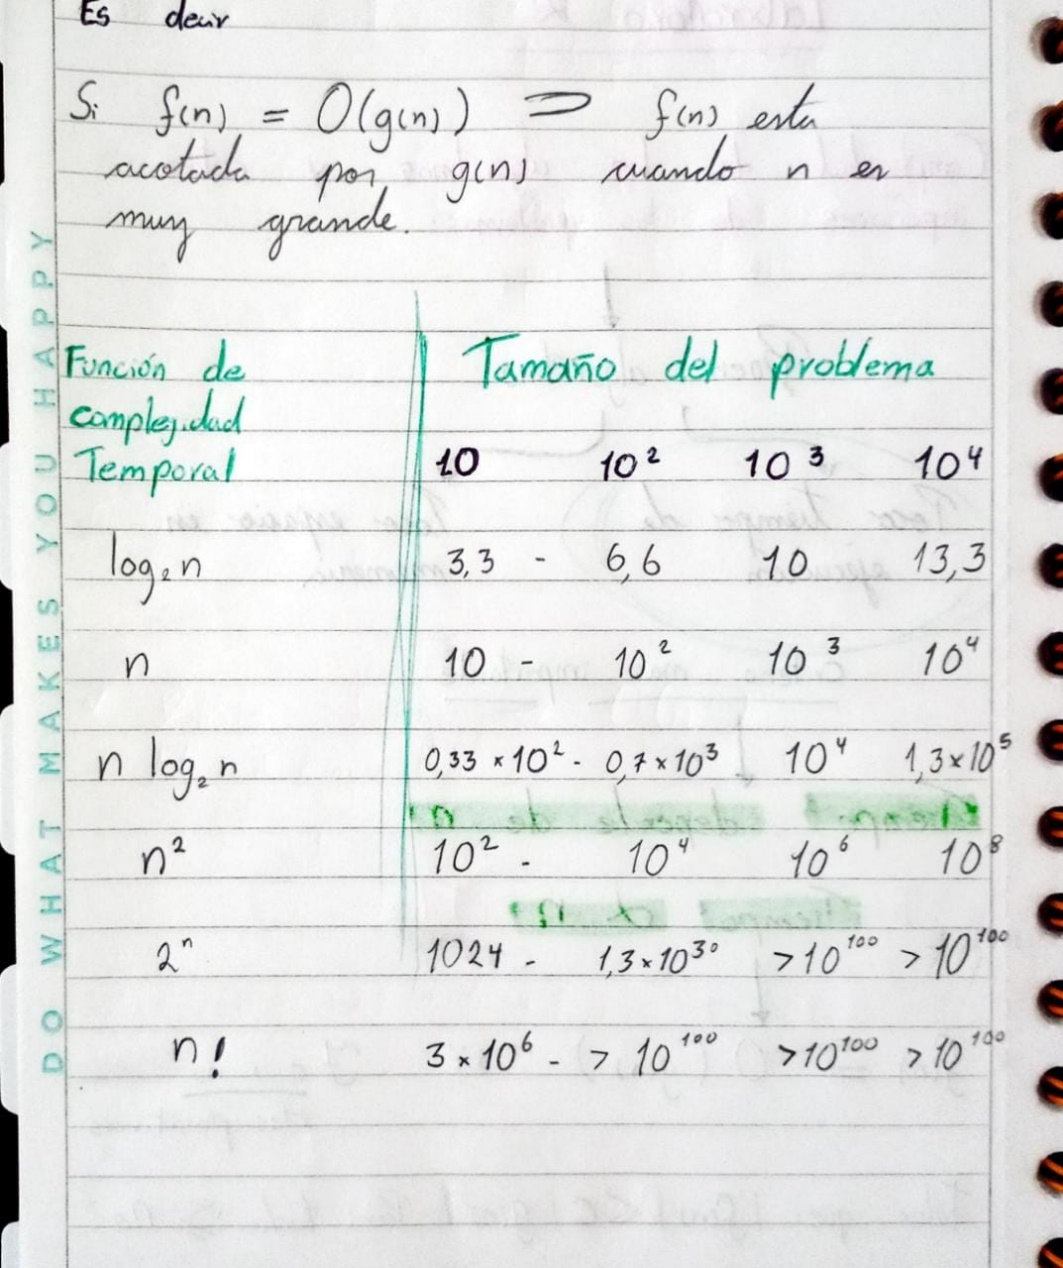 Es decir
Si f(n) = O(g(n)) ⊃ f(n) esta
acotada por g(n) cuando n es
muy grande.
Función de
complejidad
Temporal
Tamaño del problema
10 10² 10³ 10⁴
log₂n 3,3 - 6,6 10 13,3
n 10 - 10² 10³ 10⁴
n log₂n 0,33 × 10² - 0,7 × 10³ 10⁴ 1,3 × 10⁵
n² 10² - 10⁴ 10⁶ 10⁸
2ⁿ 1024 - 1,3 × 10³⁰ >10¹⁰⁰ >10¹⁰⁰
n! 3 × 10⁶ - > 10¹⁰⁰ >10¹⁰⁰ >10¹⁰⁰
DO WHAT MAKES YOU HAPPY